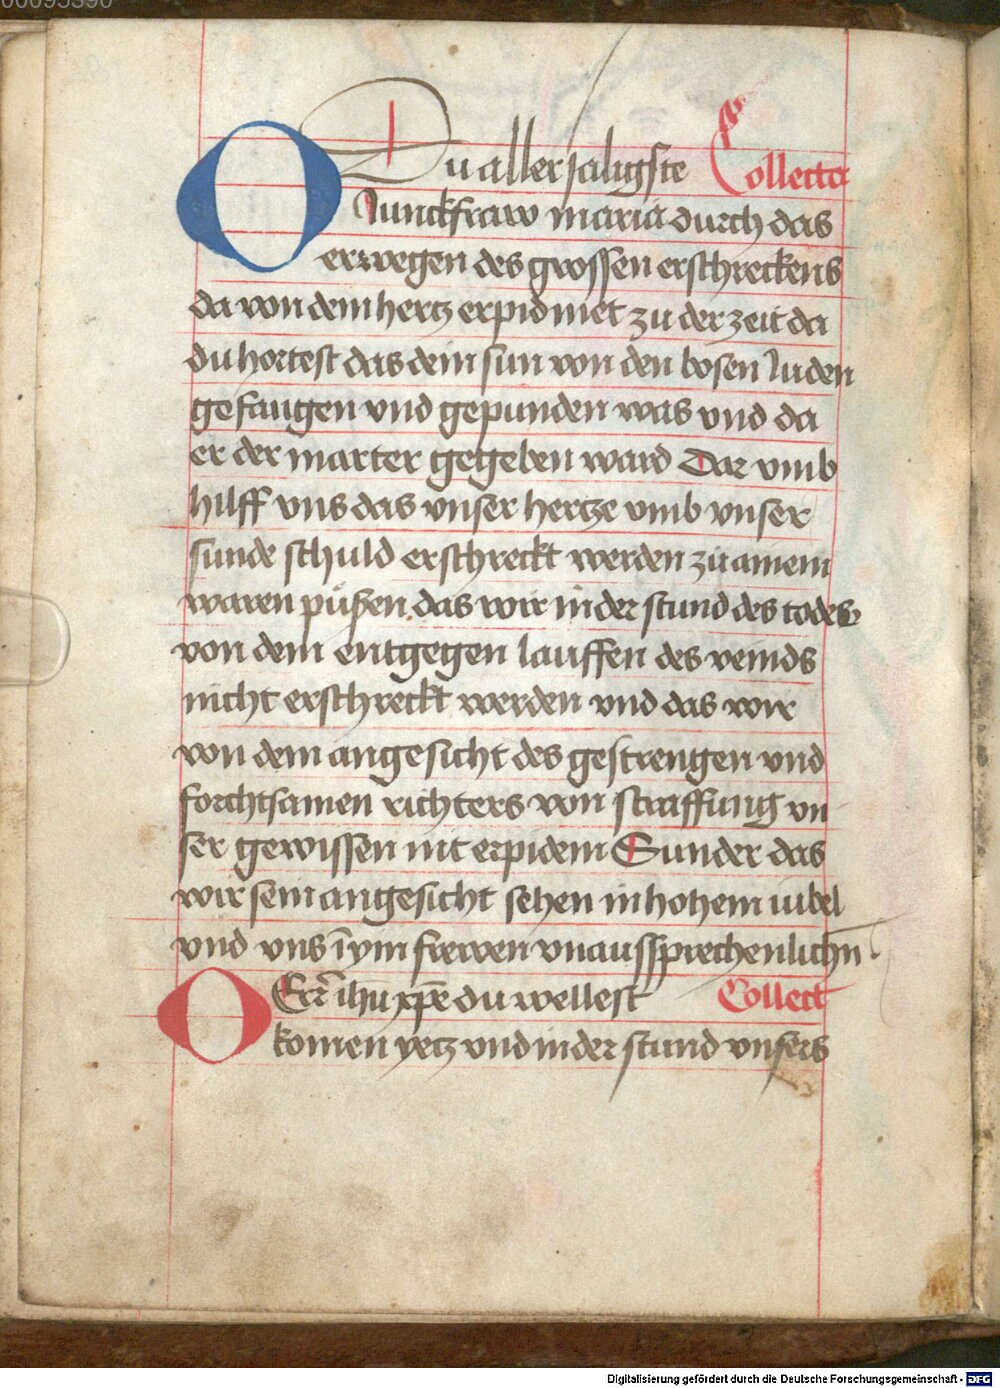 00095390
O Du aller saligste Collecta
Junckfraw maria durch das
erwegen des grossen erschreckens
da von dein hertz erpidmet zu der zeit da
du hortest das dein sun von den bosen Juden
gefangen vnd gepunden was vnd da
er der marter gegeben ward Dar vmb
hilff vns das vnser hertze vmb vnser
sunde schuld erschreckt werden zu ainem
waren pußen das wir in der stund des todes
von dem entgegen lauffen des veinds
nicht erschreckt werden vnd das wir
von dem angesicht des gestrengen vnd
forchtsamen richters von straffung vn
ser gewissen nit erpidem Sunder das
wir sein angesicht sehen in hohem iubel
vnd vns in ym frewen vnaussprechenlichn̄
O Herr̄ ihū xpē du wellest Collect
komen yetz vnd in der stund vnsers
Digitalisierung gefördert durch die Deutsche Forschungsgemeinschaft - DFG